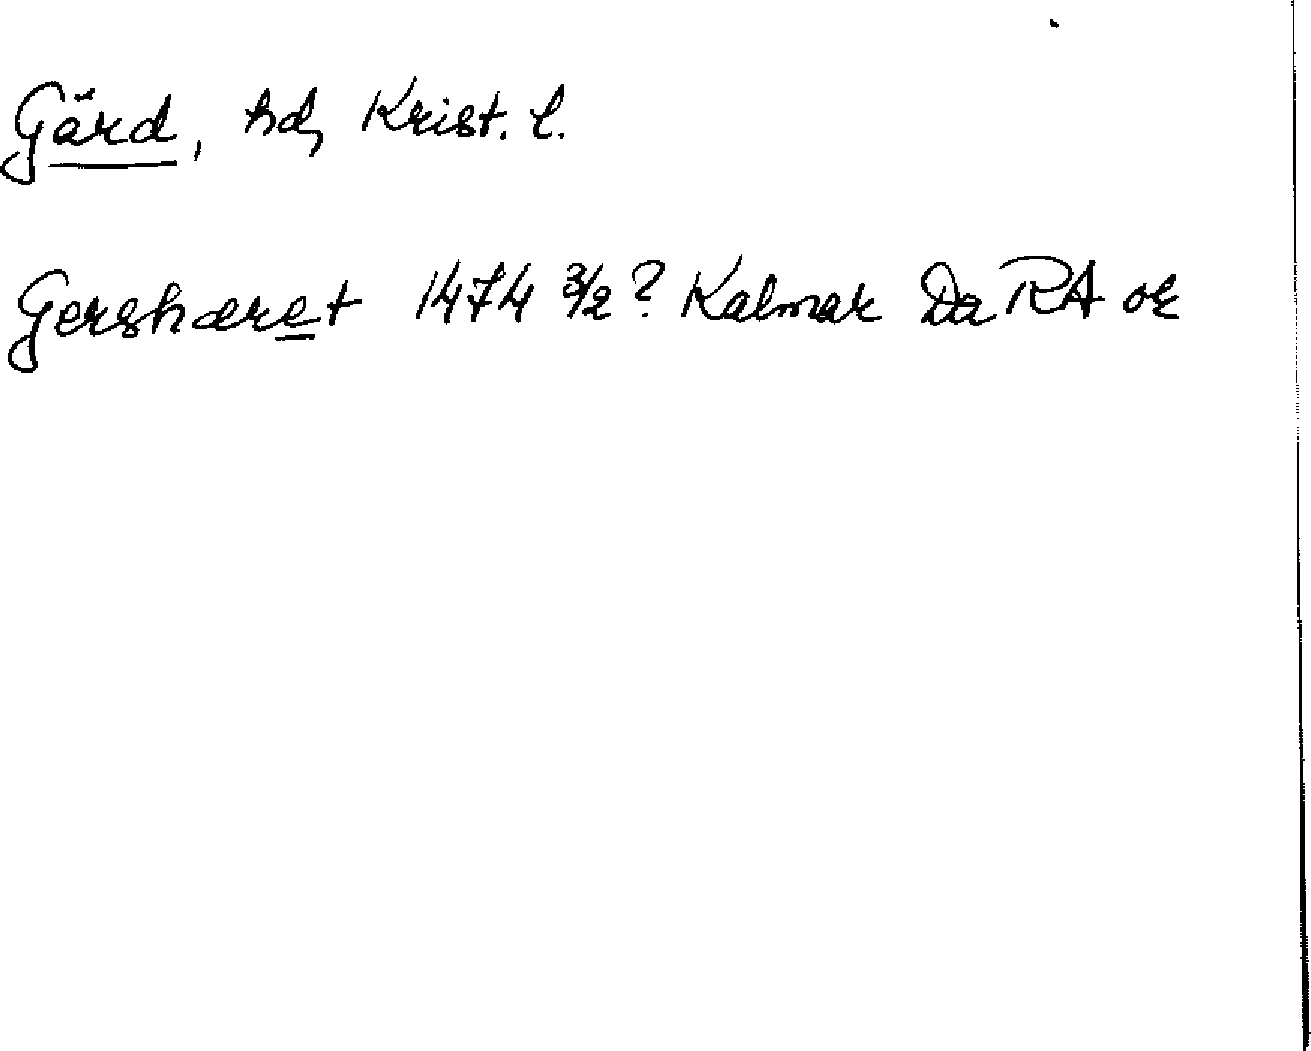 Gärd, hd, Krist. l.
Gershæret 1474 3/2? Kalmar Da RA or